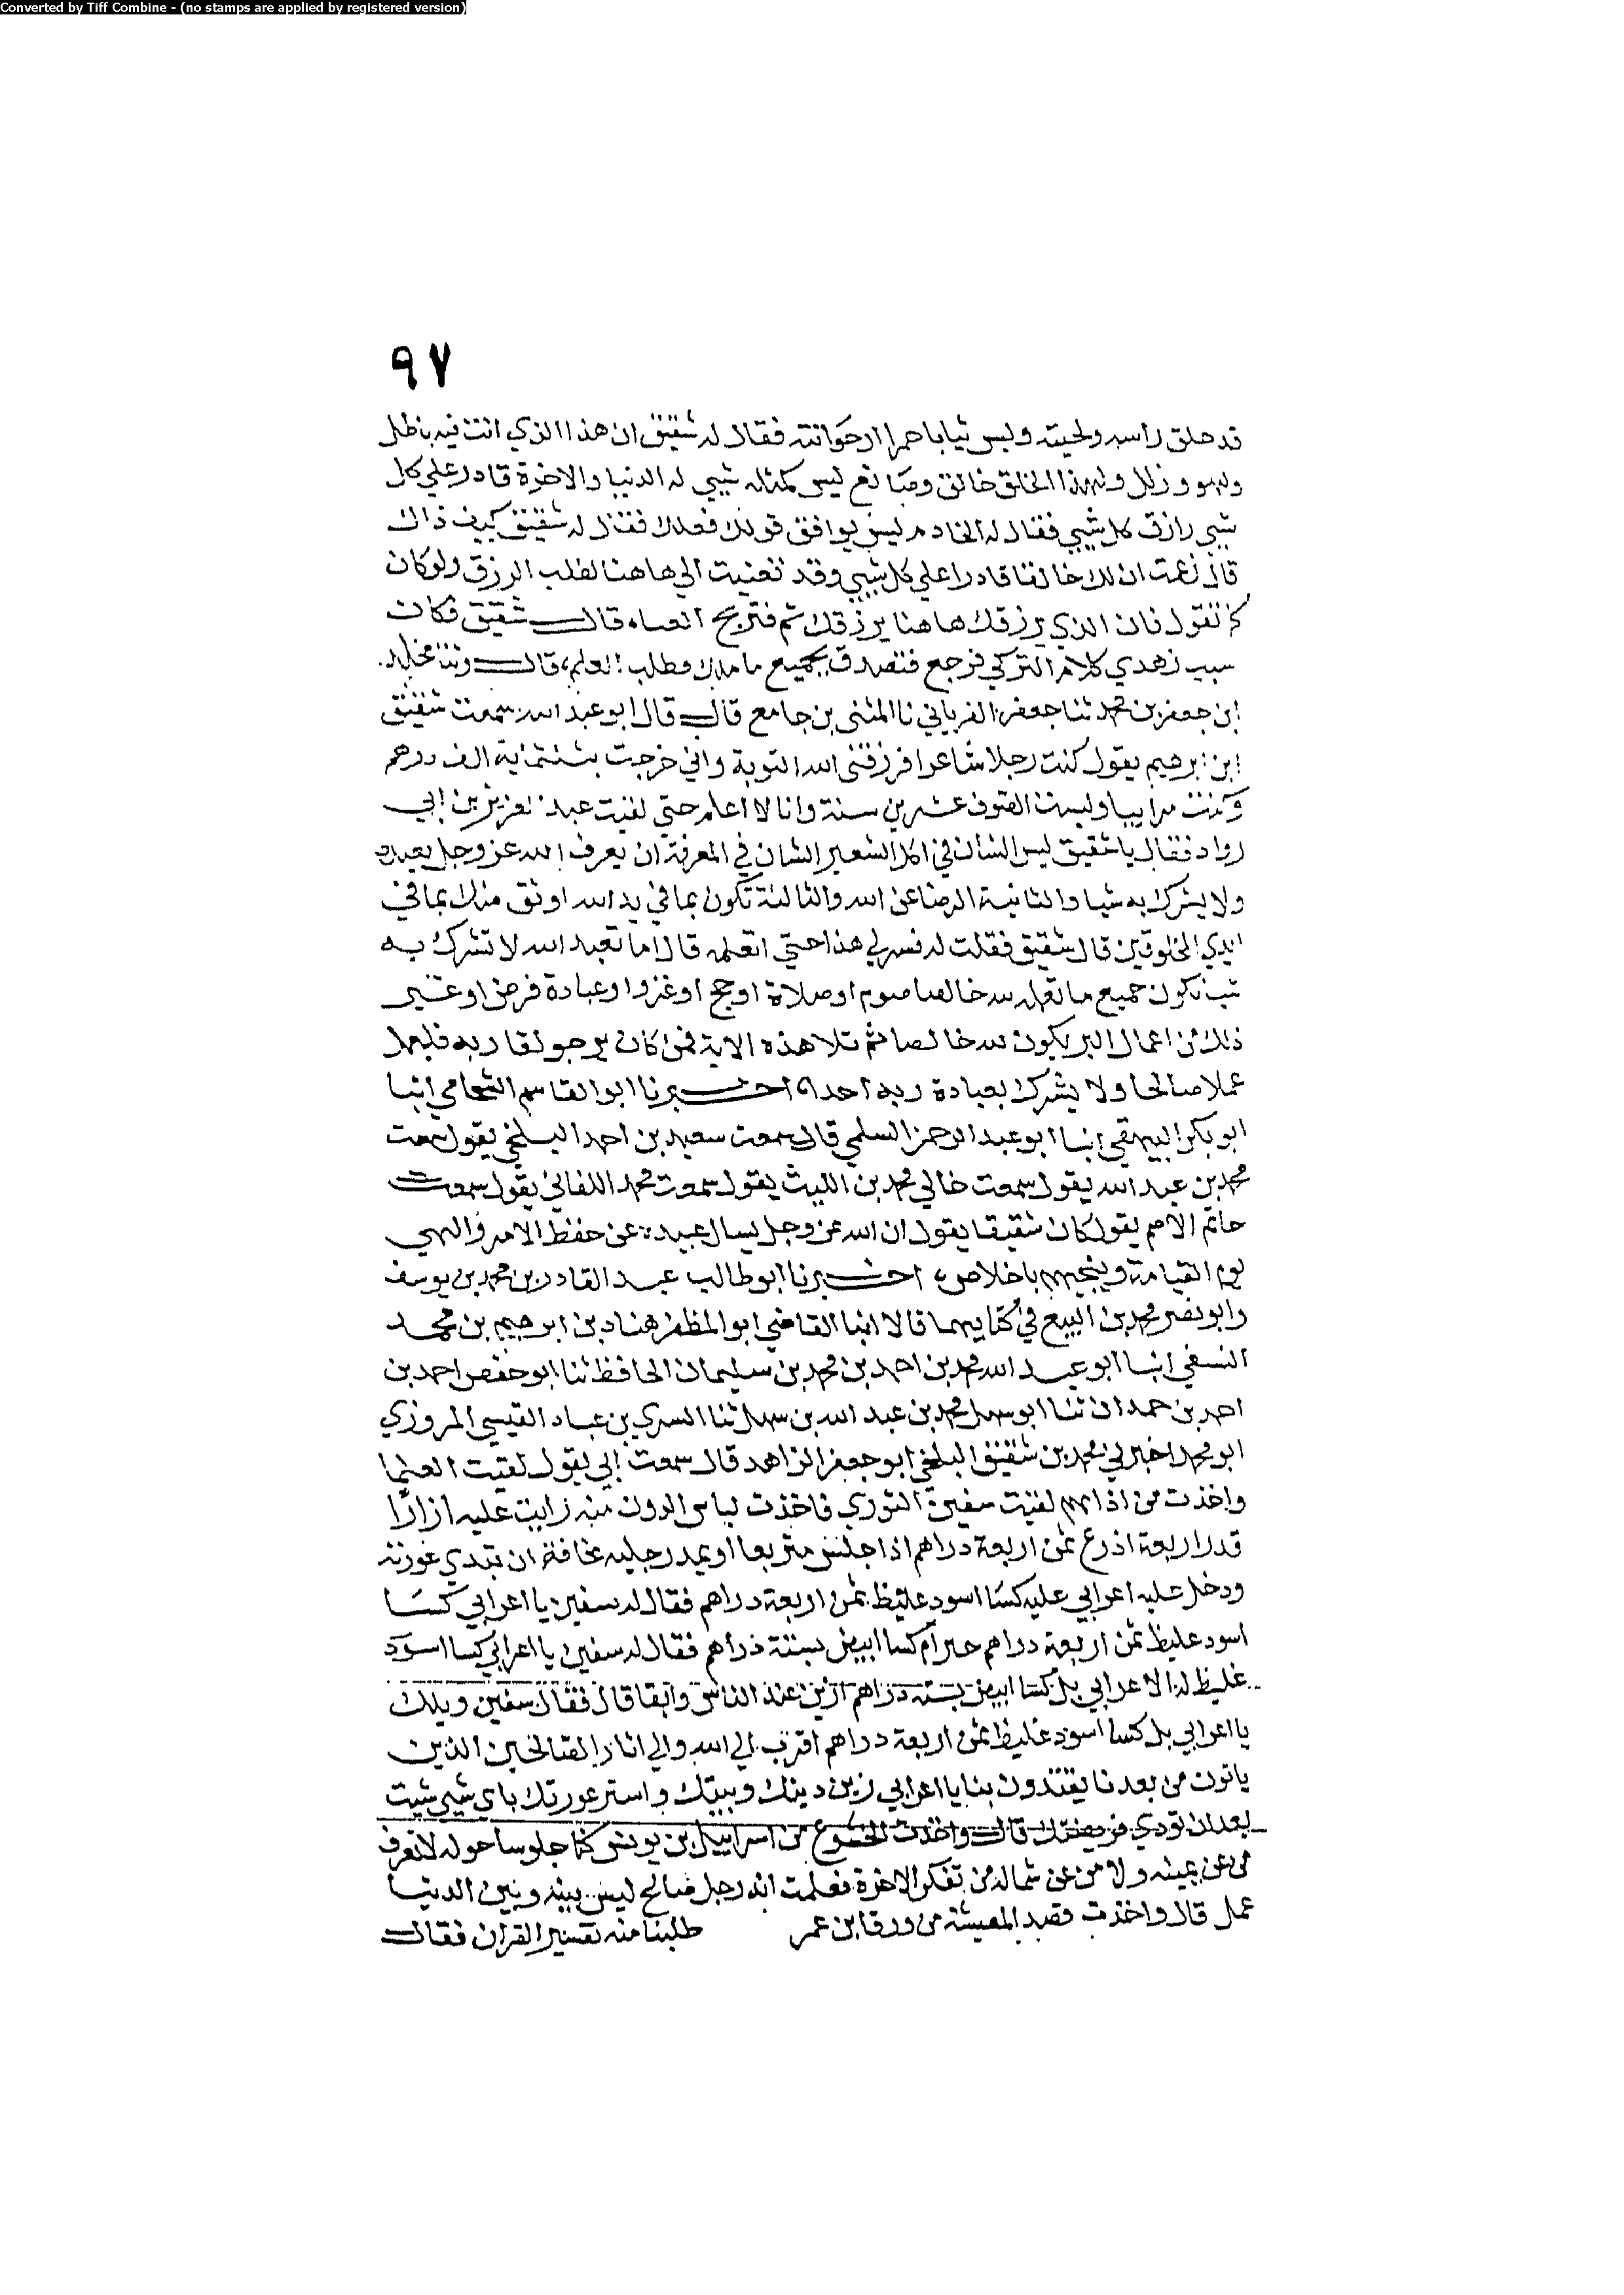 Converted by Tiff Combine - (no stamps are applied by registered version)
٩٧
قد حلق راسه ولحيته ولبس ثيابا حمرا ارجوانية فقال له شقيق ان هذا الذي انت فيه باطل
ولهذا الخلق خالق وصانع ليس كمثله شيي له الدنيا والاخرة قادر علي كل
شيي رازق كل شيي فقال له الخادم ليس يوافق قولك فعلك فقال له شقيق كيف ذاك
قال زعمت ان لك خالقا قادرا علي كل شيي وقد تعنيت الي هاهنا لطلب الرزق ولو كان
كما تقول فان الذي يرزقك هاهنا يرزقك ثم فتربح العنا قال شقيق فكان
سبب زهدي كلام التركي فرجع فتصدق بجميع ما ملك وطلب العلم قال وثنا مخلد
ابن جعفر بن محمد ثنا جعفر الفريابي نا المثنى بن جامع قال قال ابو عبد الله سمعت شقيق
ابن ابرهيم يقول كنت رجلا شاعرا فرزقني الله التوبة واني خرجت بثلثماية الف درهم
وكنت مرابيا ولبست الصوف عشرين سنة وانا لا اعلم حتي لقيت عبد العزيز بن ابي
رواد فقال يا شقيق ليس الشان في اكل الشعير الشان في المعرفة ان يعرف الله عز وجل يعبده
ولا يشرك به شيا والثانية الرضا عن الله والثالثة تكون بما في يد الله اوثق منك بما في
ايدي المخلوقين قال شقيق فقلت له فسر لي هذا حتي اتعلمه قال اما تعبد الله لا تشرك به
شيا يكون جميع ما تعمله لله خالصا من صوم او صلاة او حج او غزوا وعبادة فرض او غير
ذلك من اعمال البر يكون لله خالصا ثم تلا هذه الاية فمن كان يرجو لقا ربه فليعمل
عملا صالحا ولا يشرك بعبادة ربه احدا اخبرنا ابو القاسم الشحامي انبا
ابو بكر البيهقي انبا ابو عبد الرحمن السلمي قال سمعت سعيد بن احمد البلخي يقول سمعت
محمد بن عبد الله يقول سمعت خالي محمد بن الليث يقول سمعت محمد اللفاني يقول سمعت
حاتم الاصم يقول كان شقيقا يقول ان الله عز وجل يسال عبيده عن حفظ الامر والنهي
يوم القيامة وينجيهم باخلاص اخبرنا ابو طالب عبد القادر بن محمد بن يوسف
وابو نصر محمد بن البيع في كتابيهما قالا انبا القاضي ابو المظفر هناد بن ابرهيم بن محمد
النسفي انبا ابو عبد الله محمد بن احمد بن محمد بن سليمان الحافظ ثنا ابو حفص احمد بن
احمد بن حمدان ثنا ابو سهل محمد بن عبد الله بن سهل ثنا السري بن عباد القيسي المروزي
ابو محمد اخبرني محمد بن شقيق البلخي ابو جعفر الزاهد قال سمعت ابي يقول لقيت العلما
واخذت من ادابهم لقيت سفين الثوري فاخذت لباس الدون منه رايت عليه ازارا
قدر اربعة اذرع ثمن اربعة دراهم اذا جلس متربعا او يمد رجليه مخافة ان تبدي عورته
ودخل عليه اعرابي عليه كسا اسود غليظ ثمن اربعة دراهم فقال له سفين يا اعرابي كسا
اسود غليظ ثمن اربعة دراهم خير ام كسا ابيض بستة دراهم فقال له سفين يا اعرابي كسا اسود
غليظ الاعرابي بل كسا ابيض بستة دراهم ازين عند الناس وابقا قال فقال سفين ويلك
يا اعرابي بل كسا اسود غليظ ثمن اربعة دراهم اقرب الي الله والي اثار الصالحين الذين
ياتون من بعدنا يقتدون بنا يا اعرابي زين دينك وبيتك واستر عورتك باي شيي شيت
بعد ان تودي فريضتك قال واخذت الخشوع من اسراييل بن يونس كنا جلوسا حوله لا نعرف
من عن يمينه ولا من عن شماله من تفكر الاخرة فعلمت انه رجل صالح ليس بينه وبين الدنيا
عمل قال واخذت قصد المعيشة من ورقا بن عمر طلبنا منه تفسير القران فقال